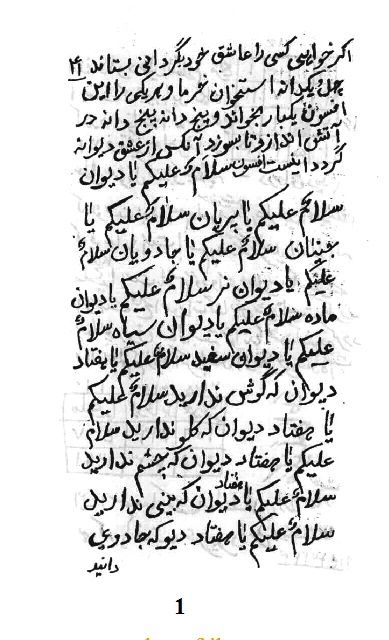 اگر خواهی کسی را عاشق خود بگردانی بستاند ۴۱
چهل و یکدانه استخوان خرما و بر یکی را این
افسون یکبار بخواند و پنج دانه پنج دانه در
آتش اندازد تا بسوزد آنکس از عشق دیوانه
گردد اینست افسون سلامٌ علیکم یا دیوان
سلامٌ علیکم یا پریان سلامٌ علیکم یا
جنیان سلامٌ علیکم یا جادویان سلامٌ
علیکم یا دیوان نر سلامٌ علیکم یا دیوان
ماده سلامٌ علیکم یا دیوان سیاه سلامٌ
علیکم یا دیوان سفید سلامٌ علیکم یا هفتاد
دیوان که گوش ندارید سلامٌ علیکم
یا هفتاد دیوان که گلو ندارید سلام
علیکم یا هفتاد دیوان که چشم ندارید
سلامٌ علیکم یا هفتاد دیوان که بینی ندارید
سلامٌ علیکم یا هفتاد دیو که جادوی
دانید
1